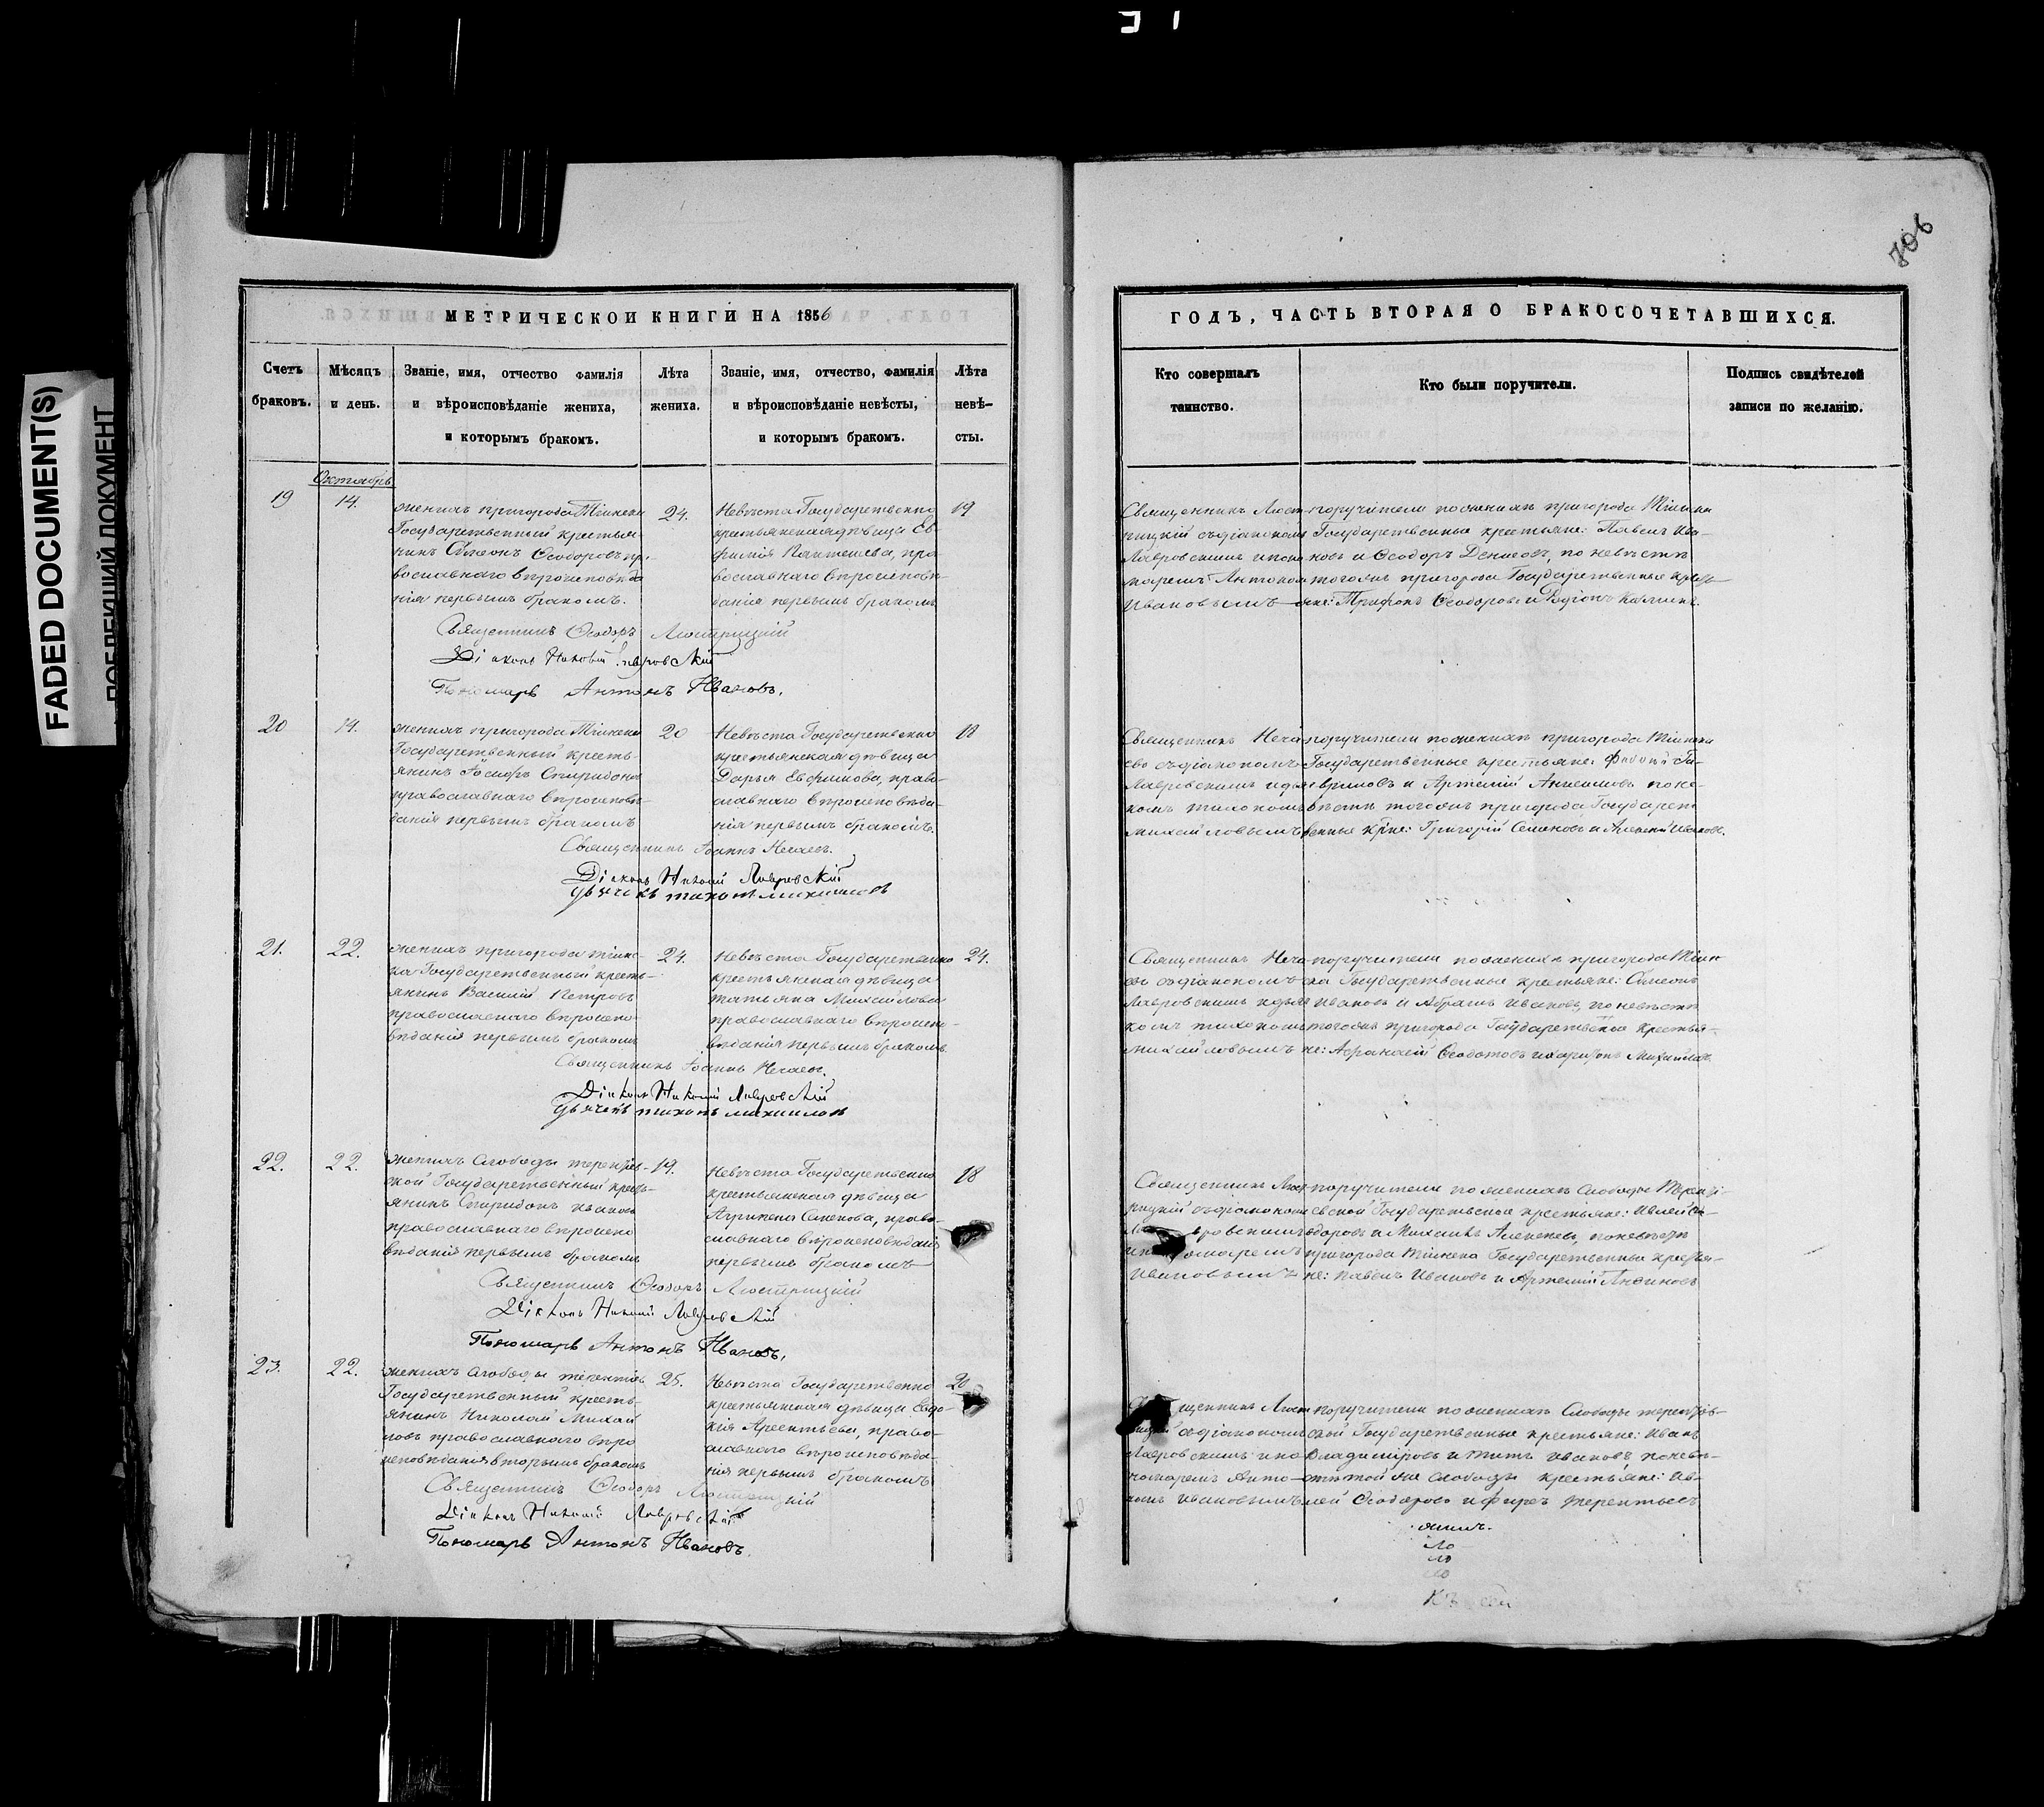 FADED DOCUMENT(S)
706
МЕТРИЧЕСКОИ КНИГИ НА 1856
Счетъ браковъ.
Мѣсяцъ и день.
Званіе, имя, отчество фамилія и вѣроисповѣданіе жениха, и которымъ бракомъ.
Лѣта жениха.
Званіе, имя, отчество, фамилія и вѣроисповѣданіе невѣсты, и которымъ бракомъ.
Лѣта невѣ-
сты.
Октябрь
19
14.
женихъ пригорода Тіинска
Государственный крестья-
нинъ Симеонъ Ѳеодоровъ пра
вославнаго вѣроисповѣда
нія первымъ бракомъ.
24.
Невѣста Государственно
крестьянская дѣвица Ев-
фимія Пантелѣева, пра
вославнаго вѣроисповѣ-
данія первымъ бракомъ
19
Священникъ Ѳеодоръ Люстрицкій
Діаконъ Николай Лавровскій
Пономарь Антонъ Ивановъ.
20
14.
женихъ пригорода Тіинска
Государственный кресть-
янинъ Іосифъ Спиридоновъ
православнаго вѣроисповѣ-
данія первымъ бракомъ
20
Невѣста Государственно
крестьянская дѣвица
Дарья Евфимова, право-
славнаго вѣроисповѣда-
нія первымъ бракомъ.
18
Священникъ Іоаннъ Нечаевъ.
Діаконъ Николай Лавровскій
Дьячекъ тихонъ михаиловъ
21.
22.
женихъ пригорода тіинс-
ка Государственный кресть-
янинъ Василій Петровъ
православнаго вѣроиспо-
вѣданія первымъ бракомъ
24.
Невѣста Государственно
крестьянская дѣвица
татьяна Михайлова
православнаго вѣроиспо-
вѣданія первымъ бракомъ.
24.
Священникъ Іоаннъ Нечаевъ.
Діаконъ Николай Лавровскій
Дьячекъ тихонъ михаиловъ
22.
22.
женихъ Слободы терентьев-
ской Государственный кресть-
янинъ Спиридонъ Ивановъ
православнаго вѣроиспо
вѣданія первымъ бракомъ
19.
Невѣста Государственно
крестьянская дѣвица
Агрипена Семенова, право-
славнаго вѣроисповѣданія
первымъ бракомъ
18
Священникъ Ѳеодоръ Люстрицкій
Діаконъ Николай Лавровскій
Пономарь Антонъ Ивановъ,
23.
22.
женихъ Слободы терентьев
Государственный кресть-
янинъ Николай Михай
ловъ православнаго вѣро
исповѣданія вторымъ бракомъ
25.
Невѣста Государственно
крестьянская дѣвица Евдо-
кія Арсентьева, право-
славнаго вѣроисповѣда-
нія первымъ бракомъ
20
Священникъ Ѳеодоръ Люстрицкій
Діаконъ Николай Лавровскій
Пономарь Антонъ Ивановъ.
ГОДЪ, ЧАСТЬ ВТОРАЯ О БРАКОСОЧЕТАВШИХСЯ.
Кто совершалъ таинство.
Кто были поручители.
Подпись свидѣтелей записи по желанію.
Священникъ Люст-
рицкій съ діакономъ
Лавровскимъ и поно
маремъ Антономъ
Ивановымъ
поручители по женихѣ пригорода Тіинска
Государственные крестьяне: Павелъ Ива-
новъ и Ѳеодоръ Денисовъ, по невѣстѣ
тогожъ пригорода Государственные кресть-
яне: Трифонъ Ѳеодоровъ и Родіонъ
Священникъ Неча
евъ съ діакономъ
Лавровскимъ и дьяч
комъ тихономъ
михайловымъ
поручители по женихѣ пригорода Тіинска
Государственные крестьяне: Га-
вриловъ и Артемій по не-
вѣстѣ тогожъ пригорода Государст
венные кр-не: Григорій Семеновъ и Алексей Ивановъ.
Священникъ Неча
евъ съ діакономъ
Лавровскимъ и дьяч
комъ тихономъ
михайловымъ
поручители по женихѣ пригорода Тіинс
ка Государственные крестьяне: Симеонъ
Ивановъ и Абрамъ Ивановъ, по невѣстѣ
тогожъ пригорода Государственные крестья-
не: Афанасій Ѳедотовъ и харитонъ Михайловъ.
Священникъ Люст
рицкій съ діакономъ
Лавровскимъ
и пономаремъ
Ивановымъ
поручители по женихѣ Слободы Терентьевской Государственные крестьяне:
и Михаилъ Алексеевъ, по невѣстѣ
пригорода Тіинска Государственные крестья-
не: Павелъ Ивановъ и Артемій
Священникъ Люст
рицкій съ діакономъ
Лавровскимъ и по
номаремъ Анто-
номъ Ивановымъ
поручители по женихѣ Слободы терентьев-
ской Государственные крестьяне: Иванъ
Владиміровъ и титъ Ивановъ, по невѣ-
стѣ той же слободы крестьяне:
Ѳеодоровъ и терентьевъ